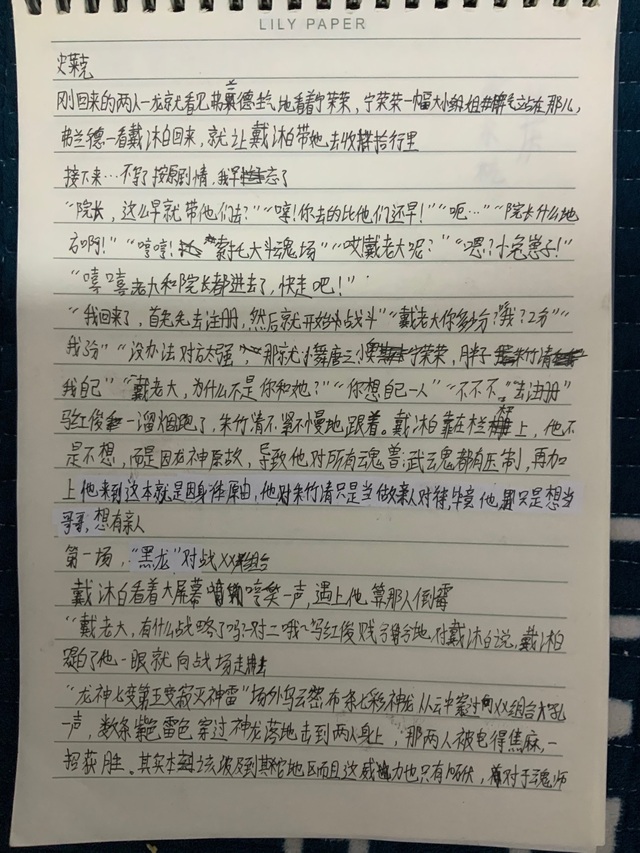 LILY PAPER
史莱克
刚回来的两人一龙就看见弗兰德生气地看着宁荣荣，宁荣荣一幅大小姐脾气站在那儿，
弗兰德一看戴沐白回来，就让戴沐白带她去收拾行里
接下来…不写了按原剧情，我早忘了
“院长，这么早就带他们去？”“嘿！你去的比他们还早！”“呃…”“院长什么地
方啊！”“哼哼！索托大斗魂场”“哎戴老大呢？”“嗯？小兔崽子！”
“嘻嘻老大和院长都进去了，快走吧！”
“我回来了，首先去注册，然后就开始战斗”“戴老大你多少分？我？2分”“
我3分”“没办法对方太强”，“那就小舞唐三小奥宁荣荣，胖子朱竹清
我自己”“戴老大，为什么不是你和她？”“你想自己一人”“不不不”“去注册”
马红俊一溜烟跑了，朱竹清不紧不慢地跟着。戴沐白靠在栏杆上，他不
是不想，而是因龙神原故，导致他对所有魂兽武魂都有压制，再加
上他来到这本就是因身体原由，他对朱竹清只是当做亲人对待，毕竟他只是想当
哥哥，想有亲人
第一场，“黑龙”对战XX组合
戴沐白看着大屏幕哼笑一声，遇上他算那人倒霉
“戴老大，有什么战略了吗？一对二哦～马红俊贱兮兮地对戴沐白说，戴沐白
白了他一眼就向战场走去
“龙神七变第五变寂灭神雷”场外乌云密布条七彩神龙从云中穿过向XX组合大吼
一声，数条紫色雷色穿过神龙落地击到两人身上，那两人被电得焦麻，一
招获胜。其实本该波及到其他地区而且这威力也只有1伏，对于魂师